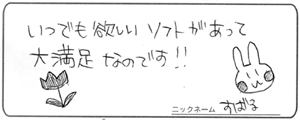 いつでも欲しいソフトがあって
大満足なのです!!
ニックネーム すばる